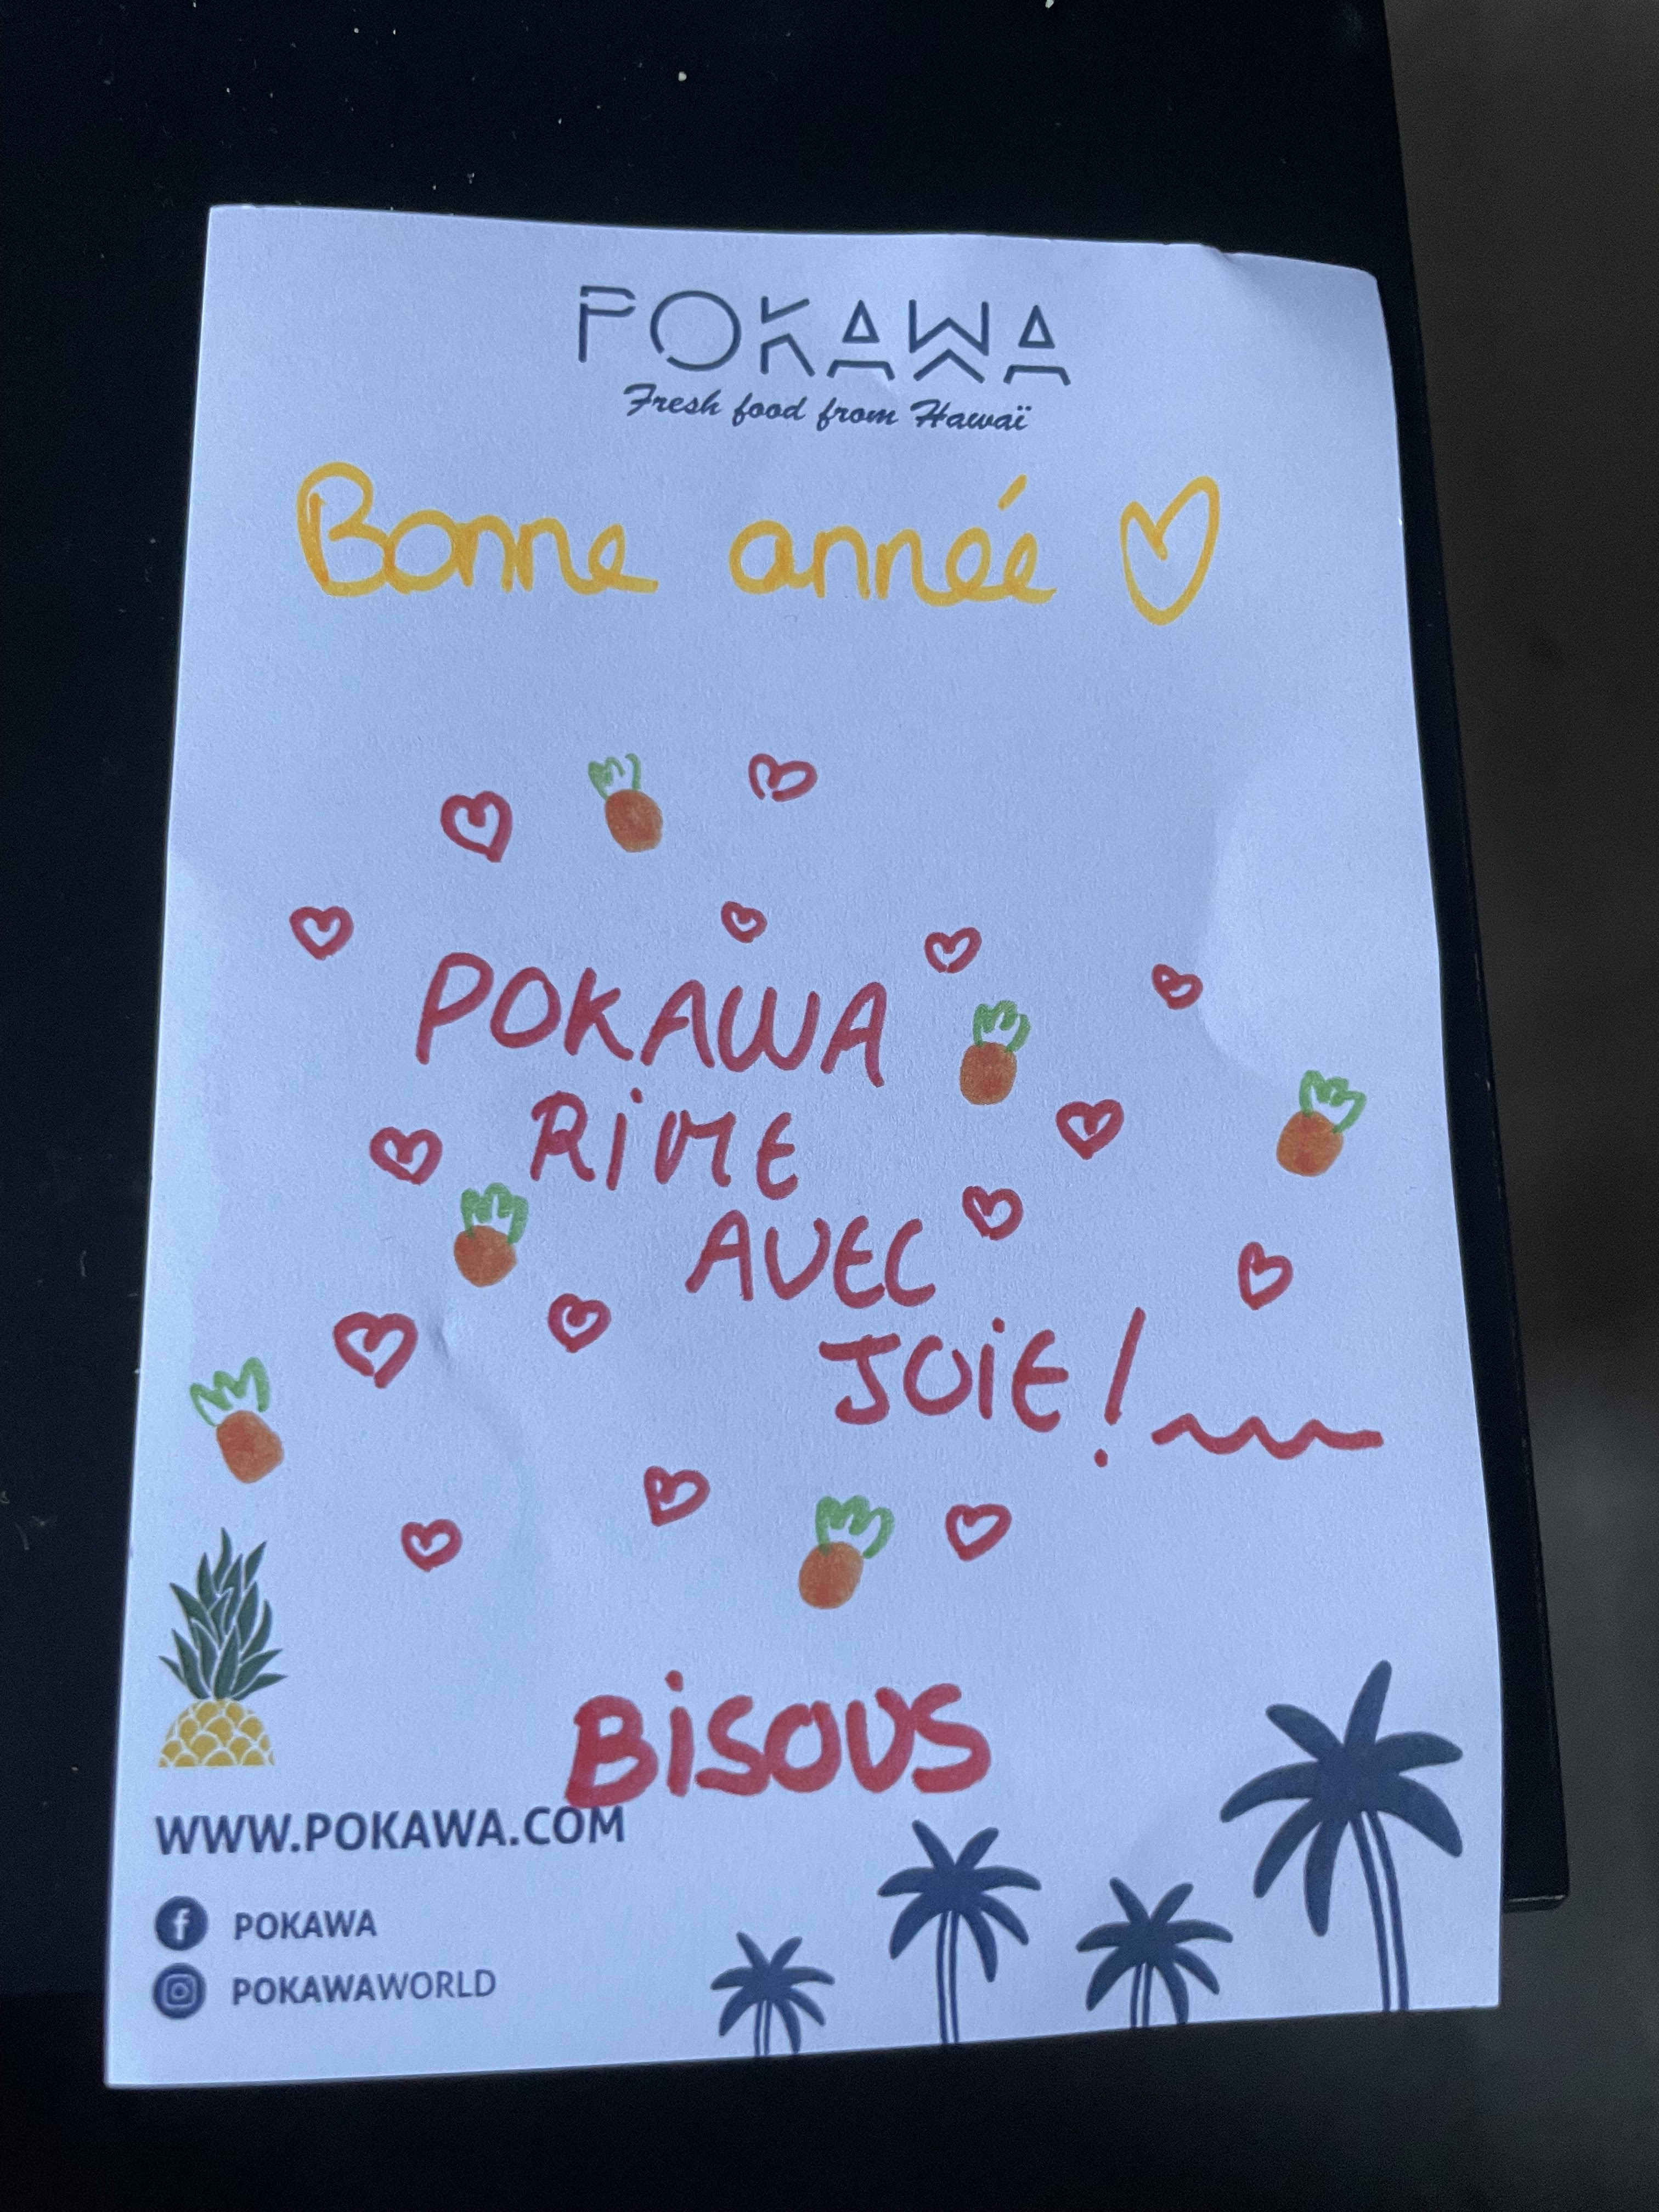 POKAWA
Fresh food from Hawaï
Bonne année
POKAWA
RiME
AVEC
JOiE!
BiSOUS
WWW.POKAWA.COM
POKAWA
POKAWAWORLD